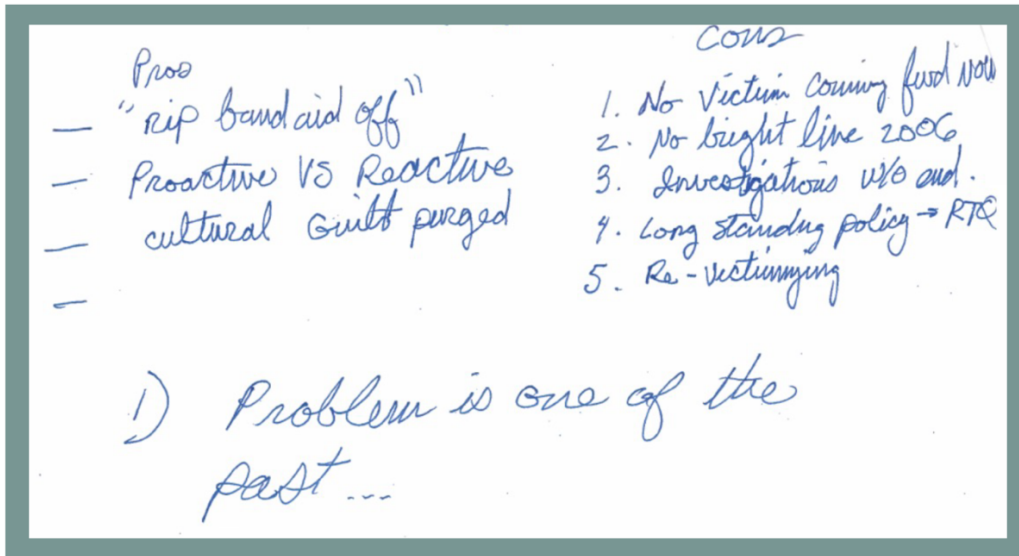 Pros
— "rip band aid off"
— Proactive VS Reactive
— cultural Guilt purged
—
Cons
1. No Victim Coming fwd now
2. No bright line 2006
3. Investigations w/o end.
4. Long standing policy → RTQ
5. Re-victimizing
1) Problem is one of the
past...